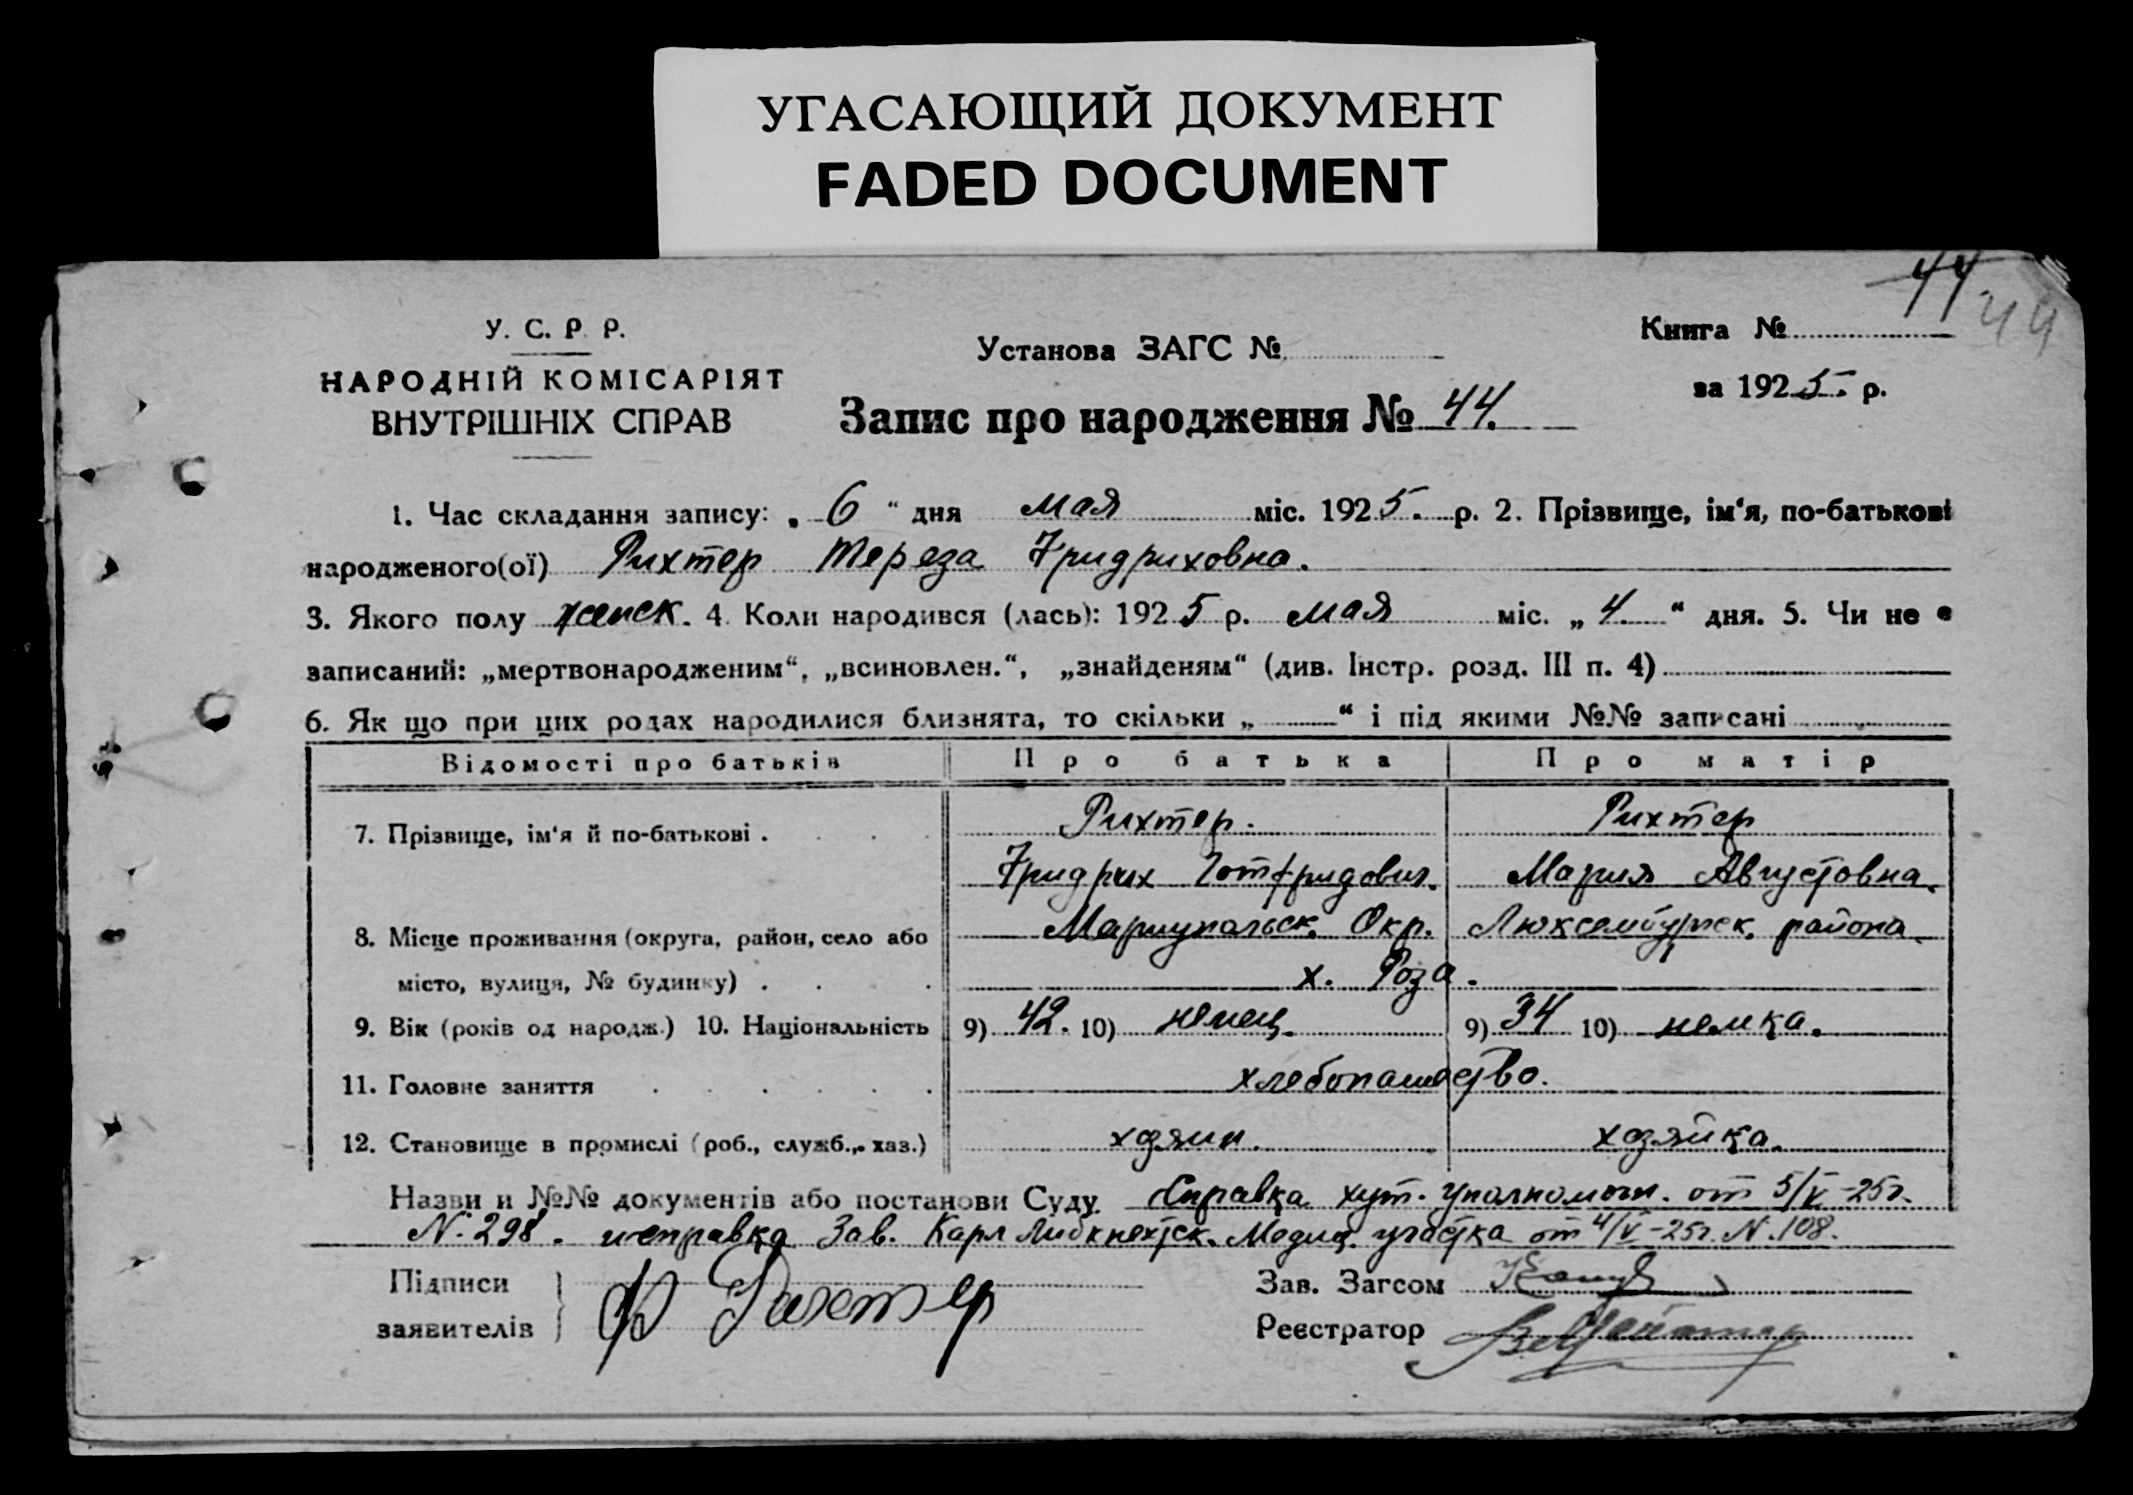 УГАСАЮЩИЙ ДОКУМЕНТ
FADED DOCUMENT
44 44
У. С. Р. Р.
НАРОДНІЙ КОМІСАРІЯТ
ВНУТРІШНІХ СПРАВ
Установа ЗАГС №
Книга №
за 1925. р.
Запис про народження № 44.
1. Час складання запису: „6“ дня мая міс. 1925. р. 2. Прізвище, ім‘я, по-батькові
народженого(ої) Рихтер Тереза Фридриховна.
3. Якого полу женск. 4. Коли народився (лась): 1925 р. мая міс. „4.“ дня. 5. Чи не є
записаний: „мертвонародженим“, „всиновлен.“, „знайденям“ (див. Інстр. розд. III п. 4)
6. Як що при цих родах народилися близнята, то скільки „ “ і під якими №№ записані
Відомості про батьків Про батька Про матір
7. Прізвище, ім‘я й по-батькові . Рихтер. Рихтер
Фридрих Готфридович. Мария Августовна.
8. Місце проживання (округа, район, село або Мариупольск. Окр. Люксембургск. района.
місто, вулиця, № будинку) . х. Роза.
9. Вік (років од народж.) 10. Національність 9) 42. 10) немец. 9) 34 10) немка.
11. Головне заняття хлебопашество.
12. Становище в промислі (роб., служб., хаз.) хозяин. хозяйка.
Назви и №№ документів або постанови Суду. Справка хут. уполномоч. от 5/V-25г.
N. 298. и справка Зав. Карл Либкнехтск. Медиц. участка от 4/V-25г. N. 108.
Підписи
заявителів
Ф Рихтер
Зав. Загсом
Реєстратор